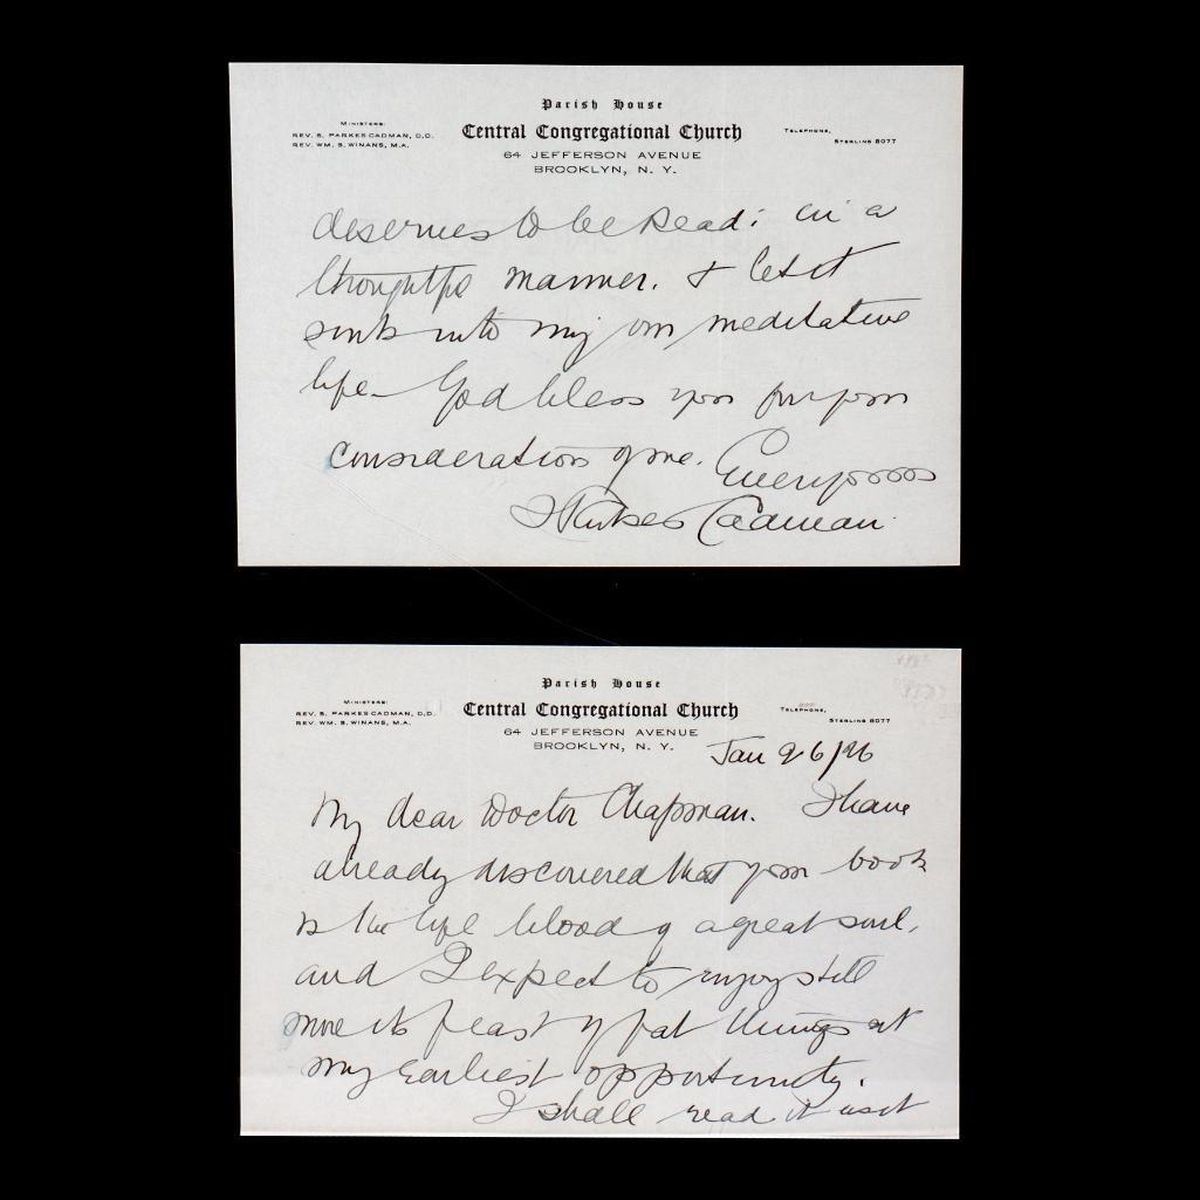 Parish House
Central Congregational Church
64 JEFFERSON AVENUE
BROOKLYN, N. Y.
MINISTERS:
REV. S. PARKES CADMAN, D.D.
REV. WM. S. WINANS, M.A.
TELEPHONE,
STERLING 8077
deserves to be read: in a
thoughtful manner. & let it
sink into my own meditative
life. God bless you for your
consideration of me. Ever yours
S Parkes Cadman
Parish House
Central Congregational Church
64 JEFFERSON AVENUE
BROOKLYN, N. Y.
MINISTERS:
REV. S. PARKES CADMAN, D.D.
REV. WM. S. WINANS, M.A.
TELEPHONE,
STERLING 8077
Jan 26/26
My dear Doctor Chapman. I have
already discovered that your book
is the life blood of a great soul,
and I expect to enjoy still
more its feast of fat things at
my earliest opportunity.
I shall read it as it